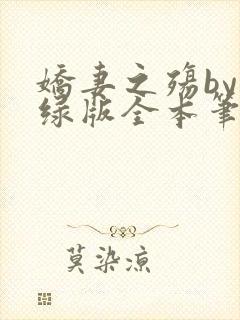 娇妻之殇by
绿版全本笔
莫染凉